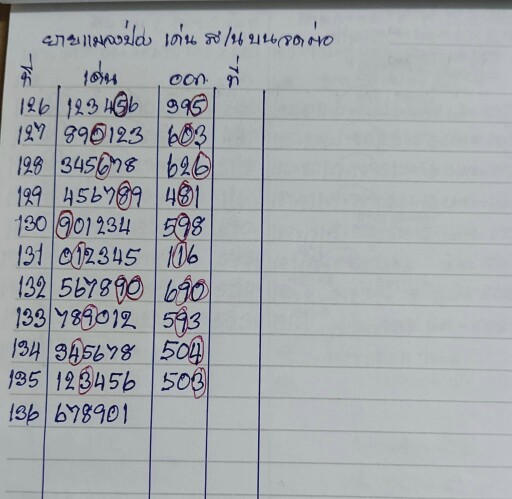 ยายแมงป่อง เด่น ส/น บน งดต่อ
ที่ เด่น ออก ที่
126 123456 395
127 890123 603
128 345678 626
129 456789 481
130 901234 598
131 012345 116
132 567890 690
133 789012 593
134 345678 504
135 123456 503
136 678901